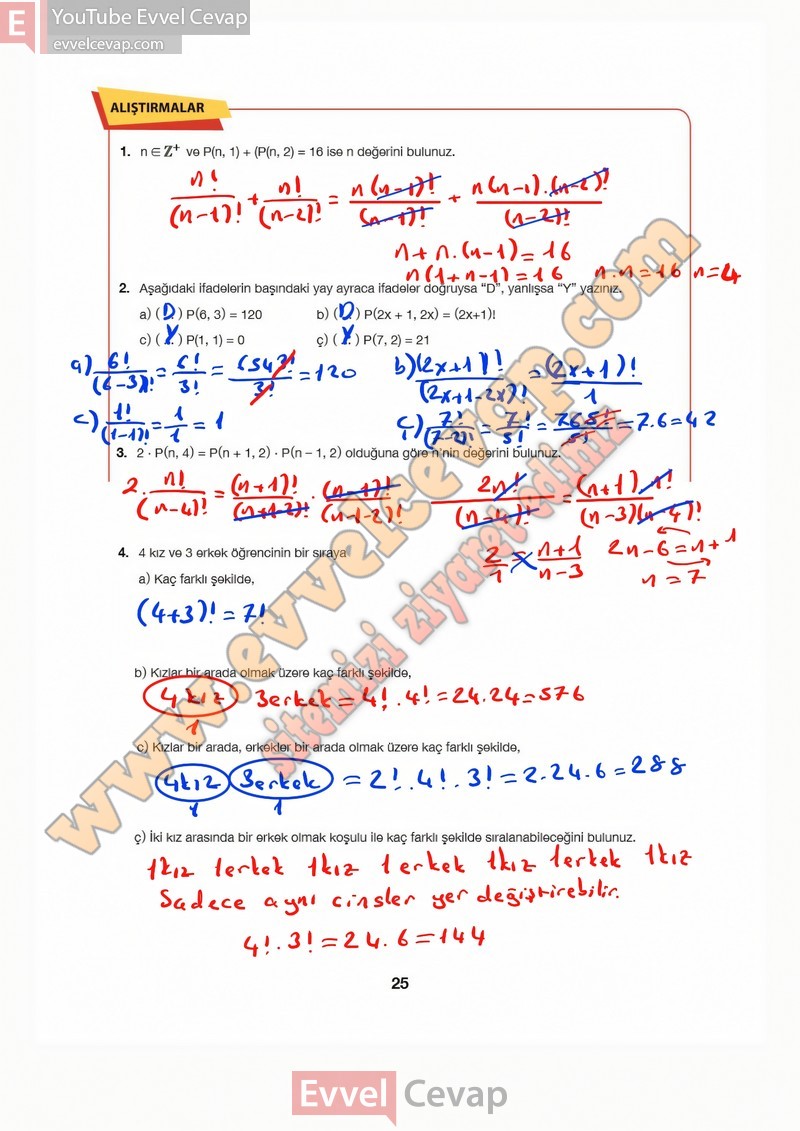 E YouTube Evvel Cevap
evvelcevap.com
ALIŞTIRMALAR
1. n ∈ Z⁺ ve P(n, 1) + (P(n, 2) = 16 ise n değerini bulunuz.
n!/(n-1)! + n!/(n-2)! = n(n-1)!/(n-1)! + n(n-1).(n-2)!/(n-2)!
n+n.(n-1)=16
n(1+n-1)=16 n.n=16 n=4
2. Aşağıdaki ifadelerin başındaki yay ayraca ifadeler doğruysa “D”, yanlışsa “Y” yazınız.
a) (D) P(6, 3) = 120 b) (D) P(2x + 1, 2x) = (2x+1)!
c) (Y) P(1, 1) = 0 ç) (Y) P(7, 2) = 21
a) 6!/(6-3)! = 6!/3! = 6543!/3! = 120 b) (2x+1)!/(2x+1-2x)! = (2x+1)!/1
c) 1!/(1-1)! = 1/1 = 1 ç) 7!/(7-2)! = 7!/5! = 765!/5! = 7.6 = 42
3. 2 · P(n, 4) = P(n + 1, 2) · P(n – 1, 2) olduğuna göre n’nin değerini bulunuz.
2. n!/(n-4)! = (n+1)!/(n+1-2)! . (n-1)!/(n-1-2)! 2n!/(n-4)! = (n+1) n!/(n-3)(n-4)!
4. 4 kız ve 3 erkek öğrencinin bir sıraya
2/1 = n+1/n-3 2n-6=n+1
a) Kaç farklı şekilde,
n=7
(4+3)! = 7!
b) Kızlar bir arada olmak üzere kaç farklı şekilde,
4 kız 3erkek = 4!.4! = 24.24 = 576
1
c) Kızlar bir arada, erkekler bir arada olmak üzere kaç farklı şekilde,
4kız 3erkek = 2!.4!.3! = 2.24.6 = 288
1 1
ç) İki kız arasında bir erkek olmak koşulu ile kaç farklı şekilde sıralanabileceğini bulunuz.
1kız 1erkek 1kız 1erkek 1kız 1erkek 1kız
Sadece aynı cinsler yer değiştirebilir.
4!.3! = 24.6 = 144
www.evvelcevap.com
sitemizi ziyaret ediniz
25
Evvel Cevap